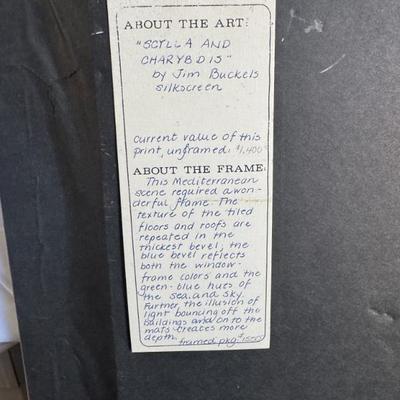 ABOUT THE ART:
"SCYLLA AND
CHARYBDIS"
by Jim Buckels
silkscreen
current value of this
print, unframed: $1,400
ABOUT THE FRAME:
This Mediterranean
scene required a won-
derful frame. The
texture of the tiled
floors and roofs are
repeated in the
thickest bevel; the
blue bevel reflects
both the window-
frame colors and the
green-blue hues of
the sea and sky.
Further, the illusion of
light bouncing off the
buildings and on to the
mats creates more
depth.
framed pkg